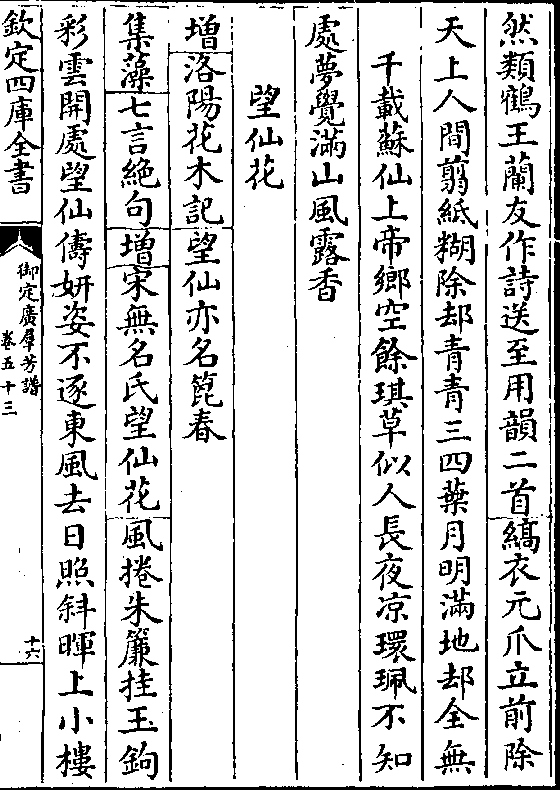 然類鶴王蘭友作詩送至用韻二首縞衣元爪立前除
天上人間翦紙糊除却青青三四葉月明滿地却全無
千載蘇仙上帝鄉空餘琪草似人長夜凉環珮不知
處夢覺滿山風露香
望仙花
增洛陽花木記望仙亦名箆春
集藻七言絶句增宋無名氏望仙花風捲朱簾挂玉鉤
彩雲開處望仙儔妍姿不逐東風去日照斜暉上小樓
欽定四庫全書
御定廣羣芳譜
卷五十三
十六